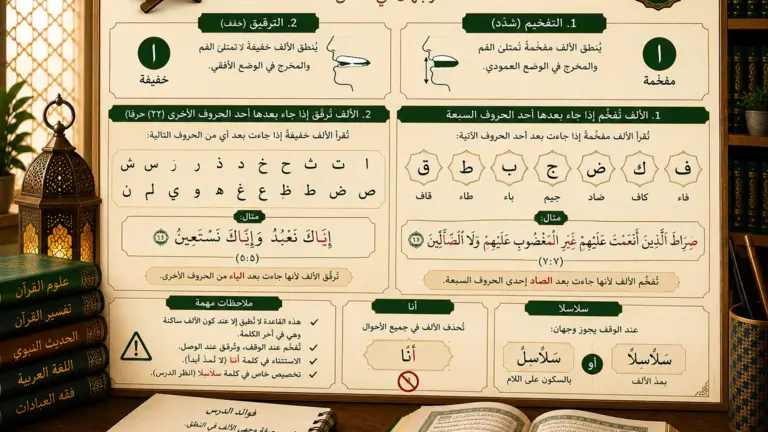 1. التفخيم (شدّد)
يُنطق الألف مفخمةً تُمتلئ الفم
والمخرج في الوضع العمودي.
ا
مفخّمة
2. الترقيق (خفف)
يُنطق الألف خفيفةً لا تمتلئ الفم
والمخرج في الوضع الأفقي.
ا
خفيفة
1. الألف تُفخّم إذا جاء بعدها أحد الحروف السبعة
تُقرأ الألف مفخمةً إذا جاءت بعد أحد الحروف الآتية:
ف ك ض ج ب ط ق
فاء كاف ضاد جيم باء طاء قاف
مثال:
صِرَاطَ الَّذِينَ أَنْعَمْتَ عَلَيْهِمْ غَيْرِ الْمَغْضُوبِ عَلَيْهِمْ وَلَا الضَّالِّينَ
(٧:٧)
تُفخّم الألف لأنها جاءت بعد الصاد إحدى الحروف السبعة.
2. الألف تُرقّق إذا جاء بعدها أحد الحروف الأخرى (٢٢ حرفا)
تُقرأ الألف خفيفةً إذا جاءت بعد أي من الحروف التالية:
ا ت ث ح خ د ذ ر ز س ش
ص ض ط ظ ع غ ه و ي ل ن
مثال:
إِيَّاكَ نَعْبُدُ وَإِيَّاكَ نَسْتَعِينُ
(٥:٥)
تُرقّق الألف لأنها جاءت بعد الياء من الحروف الأخرى.
سلاسلا
عند الوقف يجوز وجهان:
سَلَاسِلَا
بمد الألف
أو
سَلَاسِلْ
بالسكون على اللام
أنا
تُحذف الألف في جميع الأحوال
أنا
ملاحظات مهمة
هذه القاعدة لا تُطبق إلا عند كون الألف ساكنة
وهي في آخر الكلمة.
تُفخّم عند الوقف، وتُرقق عند الوصل.
الاستثناء في كلمة أنا (لا تُمدّ أبداً).
تخصيص خاص في كلمة سلاسلا (انظر الدرس).
علوم القرآن
تفسير القرآن
الحديث النبوي
اللغة العربية
فقه العبادات
فوائد الدرس